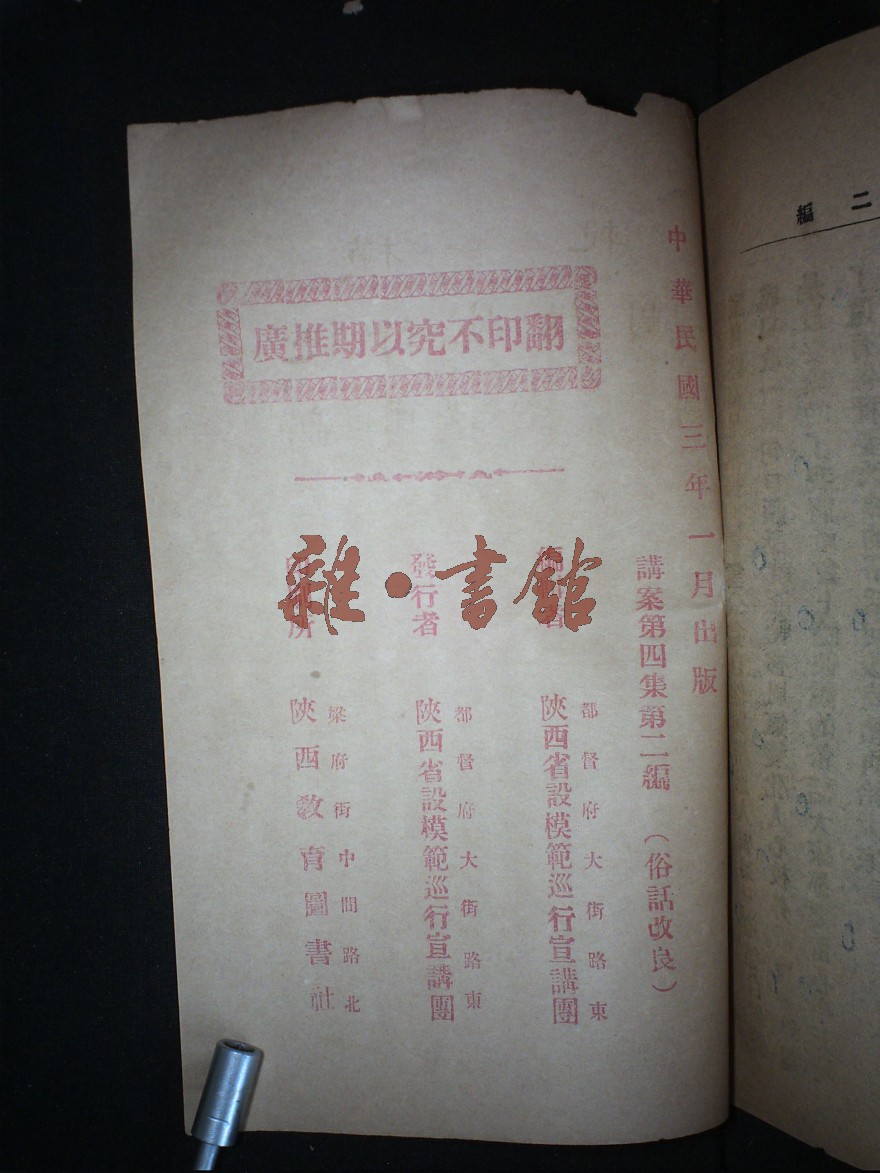 中華民國三年一月出版
講案第四集第二編　（俗話改良）
翻印不究以期推廣
都督府大街路東
陝西省設模範巡行宣講團
發行者
都督府大街路東
陝西省設模範巡行宣講團
梁府街中間路北
陝西教育圖書社
雜·書館
二編